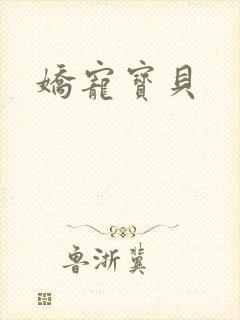 嬌寵寶貝
魯浙冀